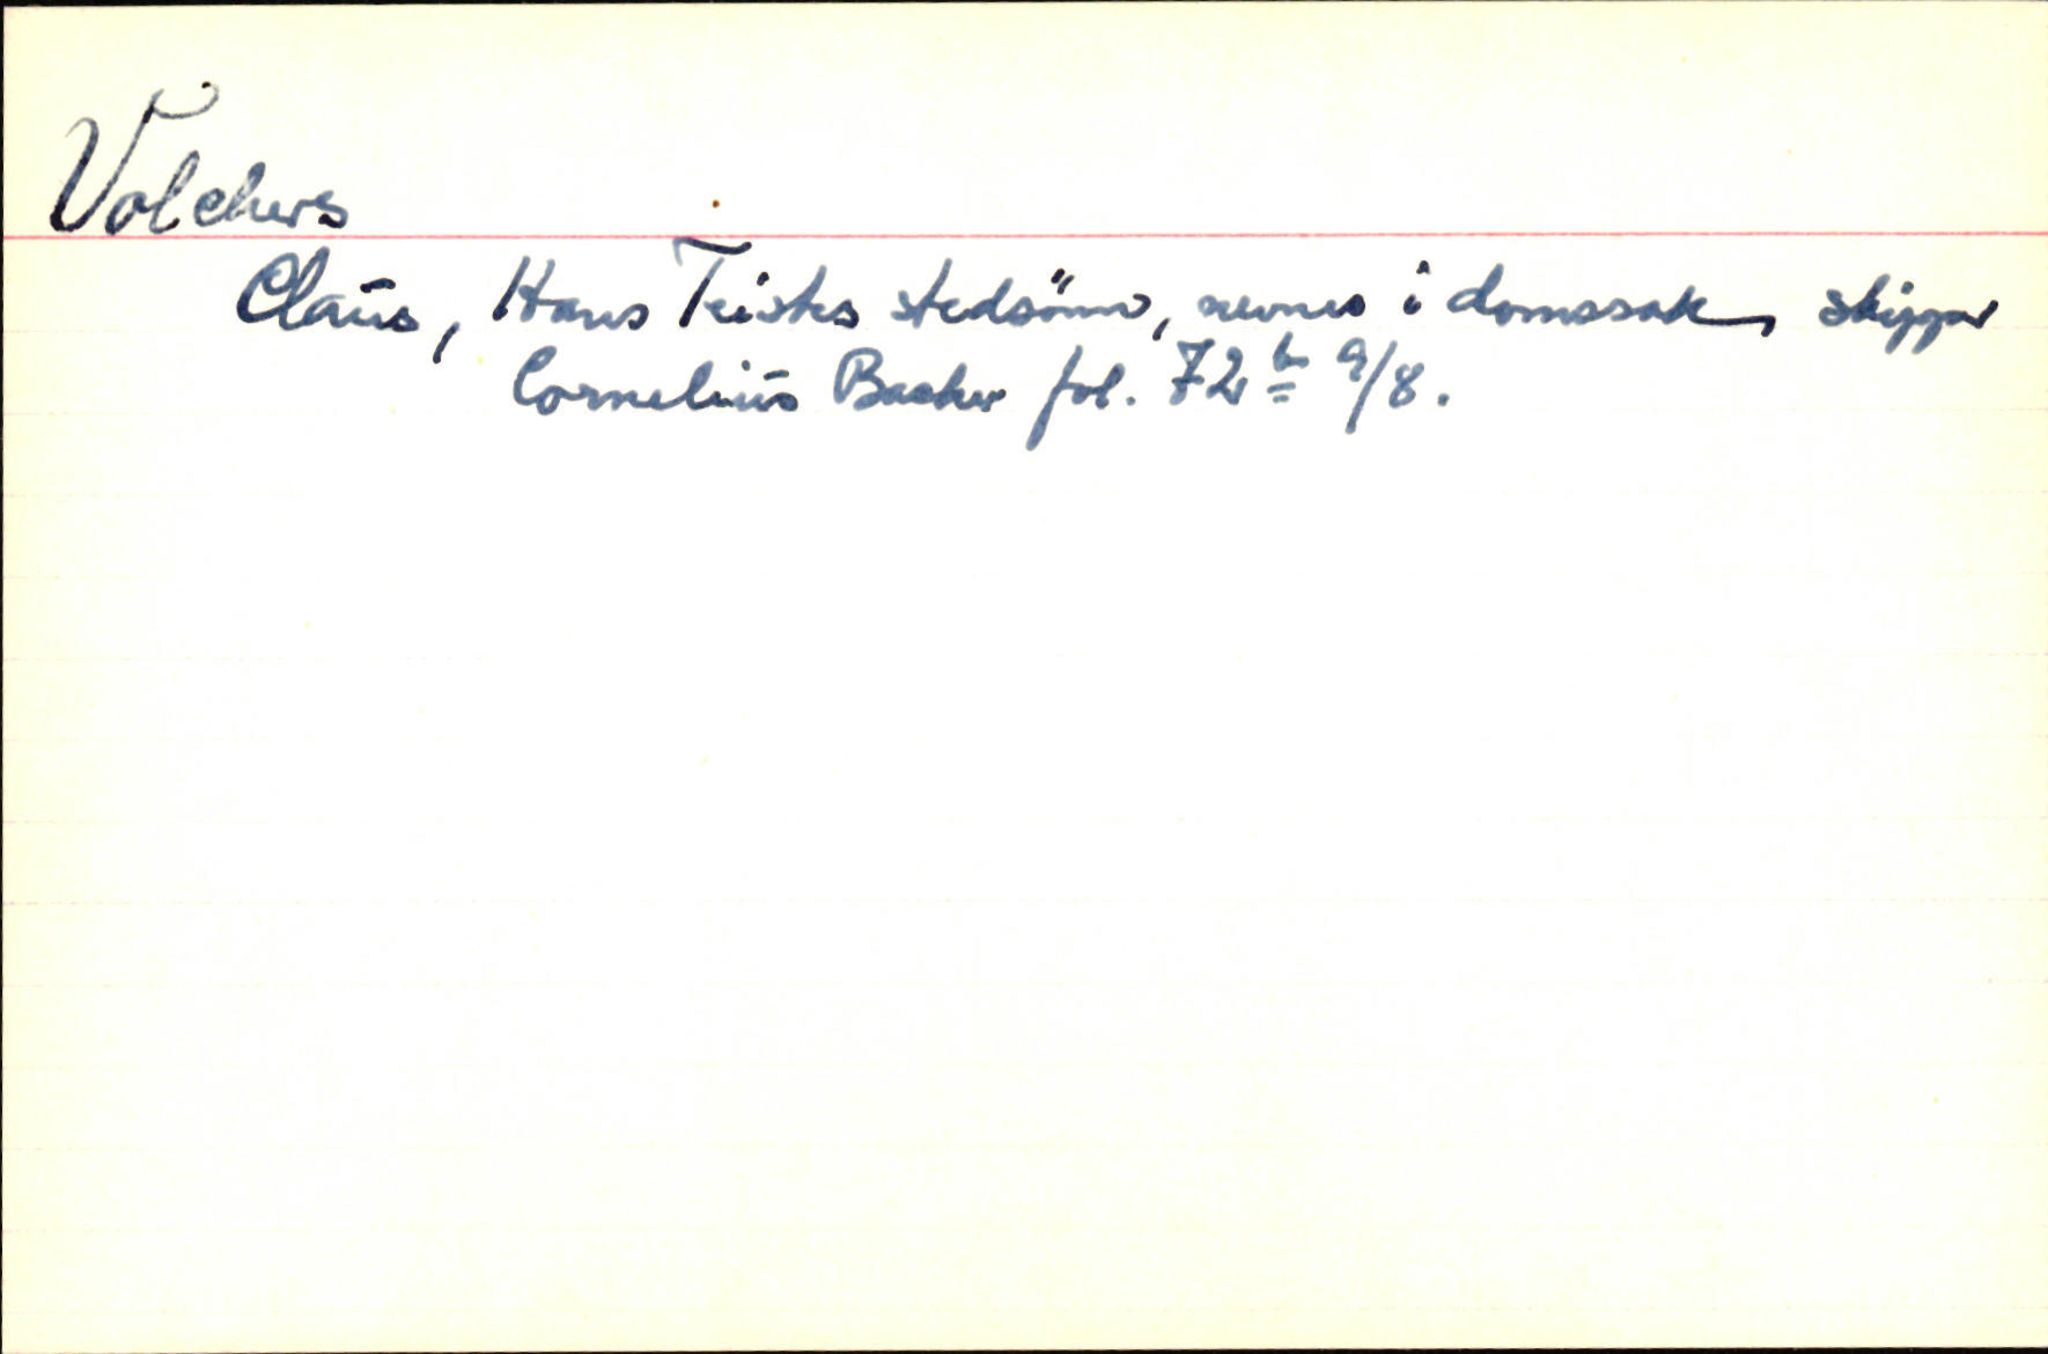 Volchers
Claus, Hans Teistes stedsönn, nevnes i domssak, skipper
Cornelius Backer fol. 72b 9/8.